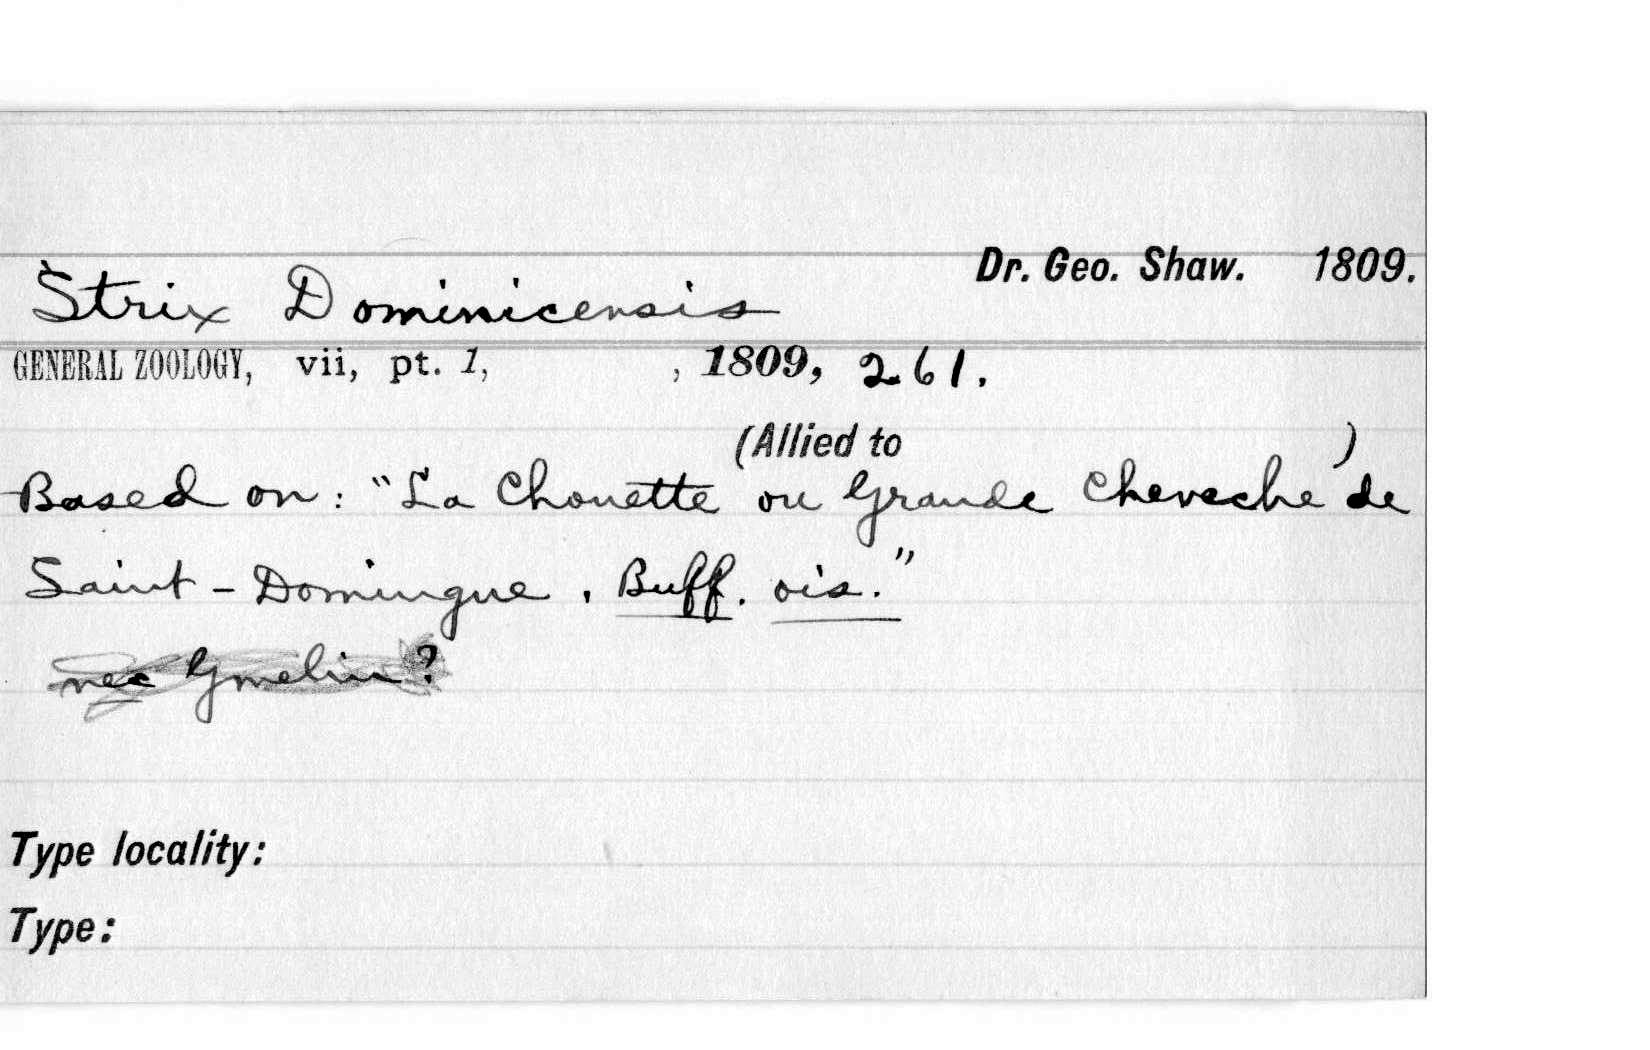 Dr. Geo. Shaw. 1809.
Strix Dominicensis
GENERAL ZOOLOGY, vii, pt. 1, , 1809, 261.
(Allied to )
Based on: "La Chouette ou Grande Cheveche de
Saint-Domingue. Buff. ois."
nec Gmelin?
Type locality:
Type: